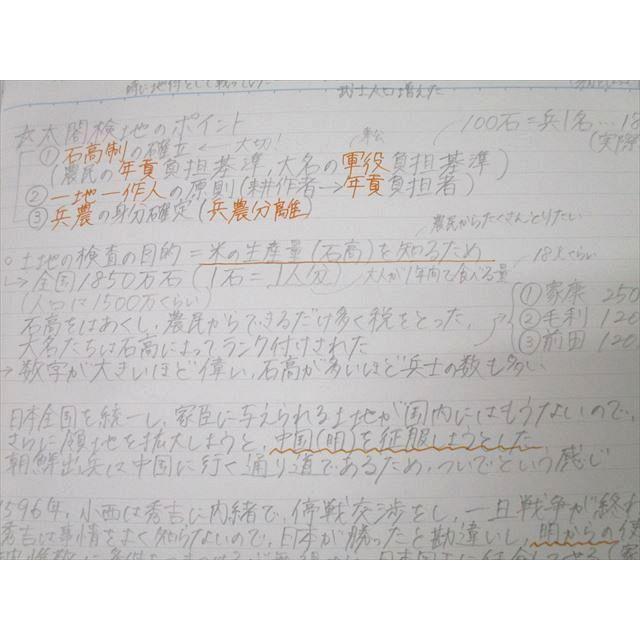 武士人口増えた
太閤検地のポイント
① 石高制の確立 ← 大切！
100石=兵1名…18
(農民の年貢負担基準, 大名の軍役負担基準)
② 一地一作人の原則(耕作者→年貢負担者)
③ 兵農の身分確定(兵農分離)
農民からたくさんとりたい
○ 土地の検査の目的 = 米の生産量(石高)を知るため
↳ 全国1850万石 (1石=1人分) 大人が1年間で食べる量
(人口は1500万くらい)
石高をはあくし, 農民からできるだけ多く税をとった,
大名たちは石高によってランク付けされた
① 家康 250
② 毛利 120
③ 前田 120
→ 数字が大きいほど偉い, 石高が多いほど兵士の数も多い
日本全国を統一し, 家臣に与えられる土地が国内にはもうないので,
さらに領地を拡大しようと, 中国(明)を征服しようとした
朝鮮出兵は中国に行く通り道であるため, ついでという感じ
1596年, 小西は秀吉に内緒で, 停戦交渉をし, 一旦戦争が終わ
秀吉は事情をよく知らないので, 日本が勝ったと勘違いし, 明からの使